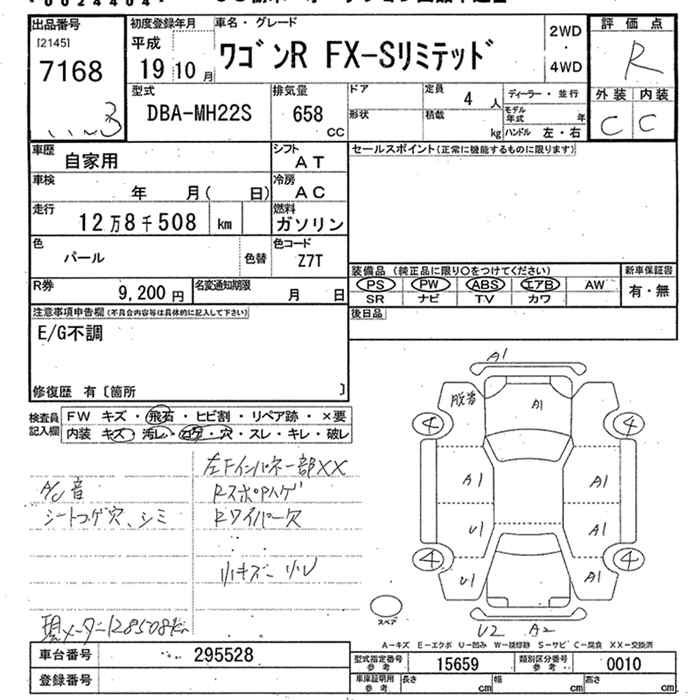 出品番号 初度登録年月 車名・グレード 2WD ・ 4WD 評価点
[2145]
7168
平成 19 10 月
ワゴンR FX-Sリミテッド
R
外装 内装
C C
型式 排気量 ドア 定員 4 人 ディーラー・並行
DBA-MH22S 658 CC
形状 積載 kg モデル年式 年
ハンドル 左・右
車歴 自家用 シフト AT セールスポイント(正常に機能するものに限ります)
車検 年 月( 日) 冷房 AC
走行 12万8千508 km 燃料 ガソリン
色 パール 色替 色コード Z7T
装備品 (純正品に限り○をつけてください) 新車保証書
PS PW ABS エアB AW 有・無
SR ナビ TV カワ
R券 9,200円 名変通知期限 月 日
後日品
注意事項申告欄(不具合内容等は具体的に記入して下さい)
E/G不調
修復歴 有〔箇所 〕
検査員記入欄
FW キズ・飛石・ヒビ割・リペア跡・×要
内装 キズ・汚レ・コゲ・穴・スレ・キレ・破レ
左Fインパネ一部XX
A/C音 Rスポアハゲ
シートコゲ穴、シミ Rワイパー欠
小キズ 小凹
現メーター128508km
A1
A1
4 4
A1 A1
U1 A1
4 4
U1 A1
スペア
U2 A2
A-キズ E-エクボ U-凹み W-補修跡 S-サビ C-腐食 XX-交換済
車台番号 295528
登録番号
型式指定番号 参考 15659 類別区分番号 参考 0010
車庫証明用 参考 長さ cm 幅 cm 高さ cm